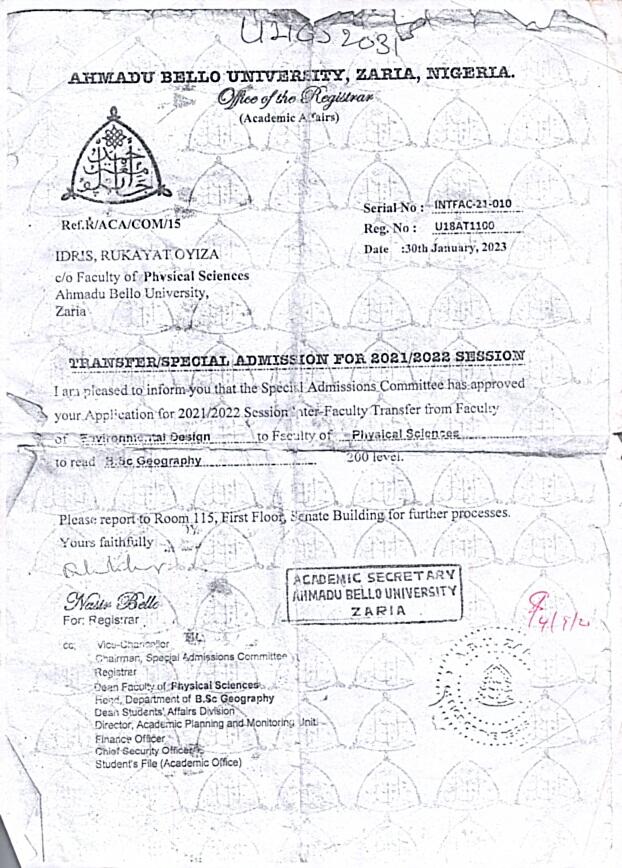 U21GS2031
AHMADU BELLO UNIVERSITY, ZARIA, NIGERIA.
Office of the Registrar
(Academic Affairs)
Serial No : INTFAC-21-010
Ref.R/ACA/COM/15
Reg. No : U18AT1100
Date :30th January, 2023
IDRIS, RUKAYAT OYIZA
c/o Faculty of Physical Sciences
Ahmadu Bello University,
Zaria
TRANSFER/SPECIAL ADMISSION FOR 2021/2022 SESSION
I am pleased to inform you that the Special Admissions Committee has approved
your Application for 2021/2022 Session Inter-Faculty Transfer from Faculty
of Environmental Design to Faculty of Physical Sciences
to read B.Sc Geography 200 level.
Please report to Room 115, First Floor, Senate Building for further processes.
Yours faithfully
Nasir Bello
For: Registrar
ACADEMIC SECRETARY
AHMADU BELLO UNIVERSITY
ZARIA
cc: Vice-Chancellor
Chairman, Special Admissions Committee
Registrer
Dean Faculty of Physical Sciences
Head, Department of B.Sc Geography
Dean Students' Affairs Division
Director, Academic Planning and Monitoring Unit
Finance Officer
Chief Security Officer
Student's File (Academic Office)